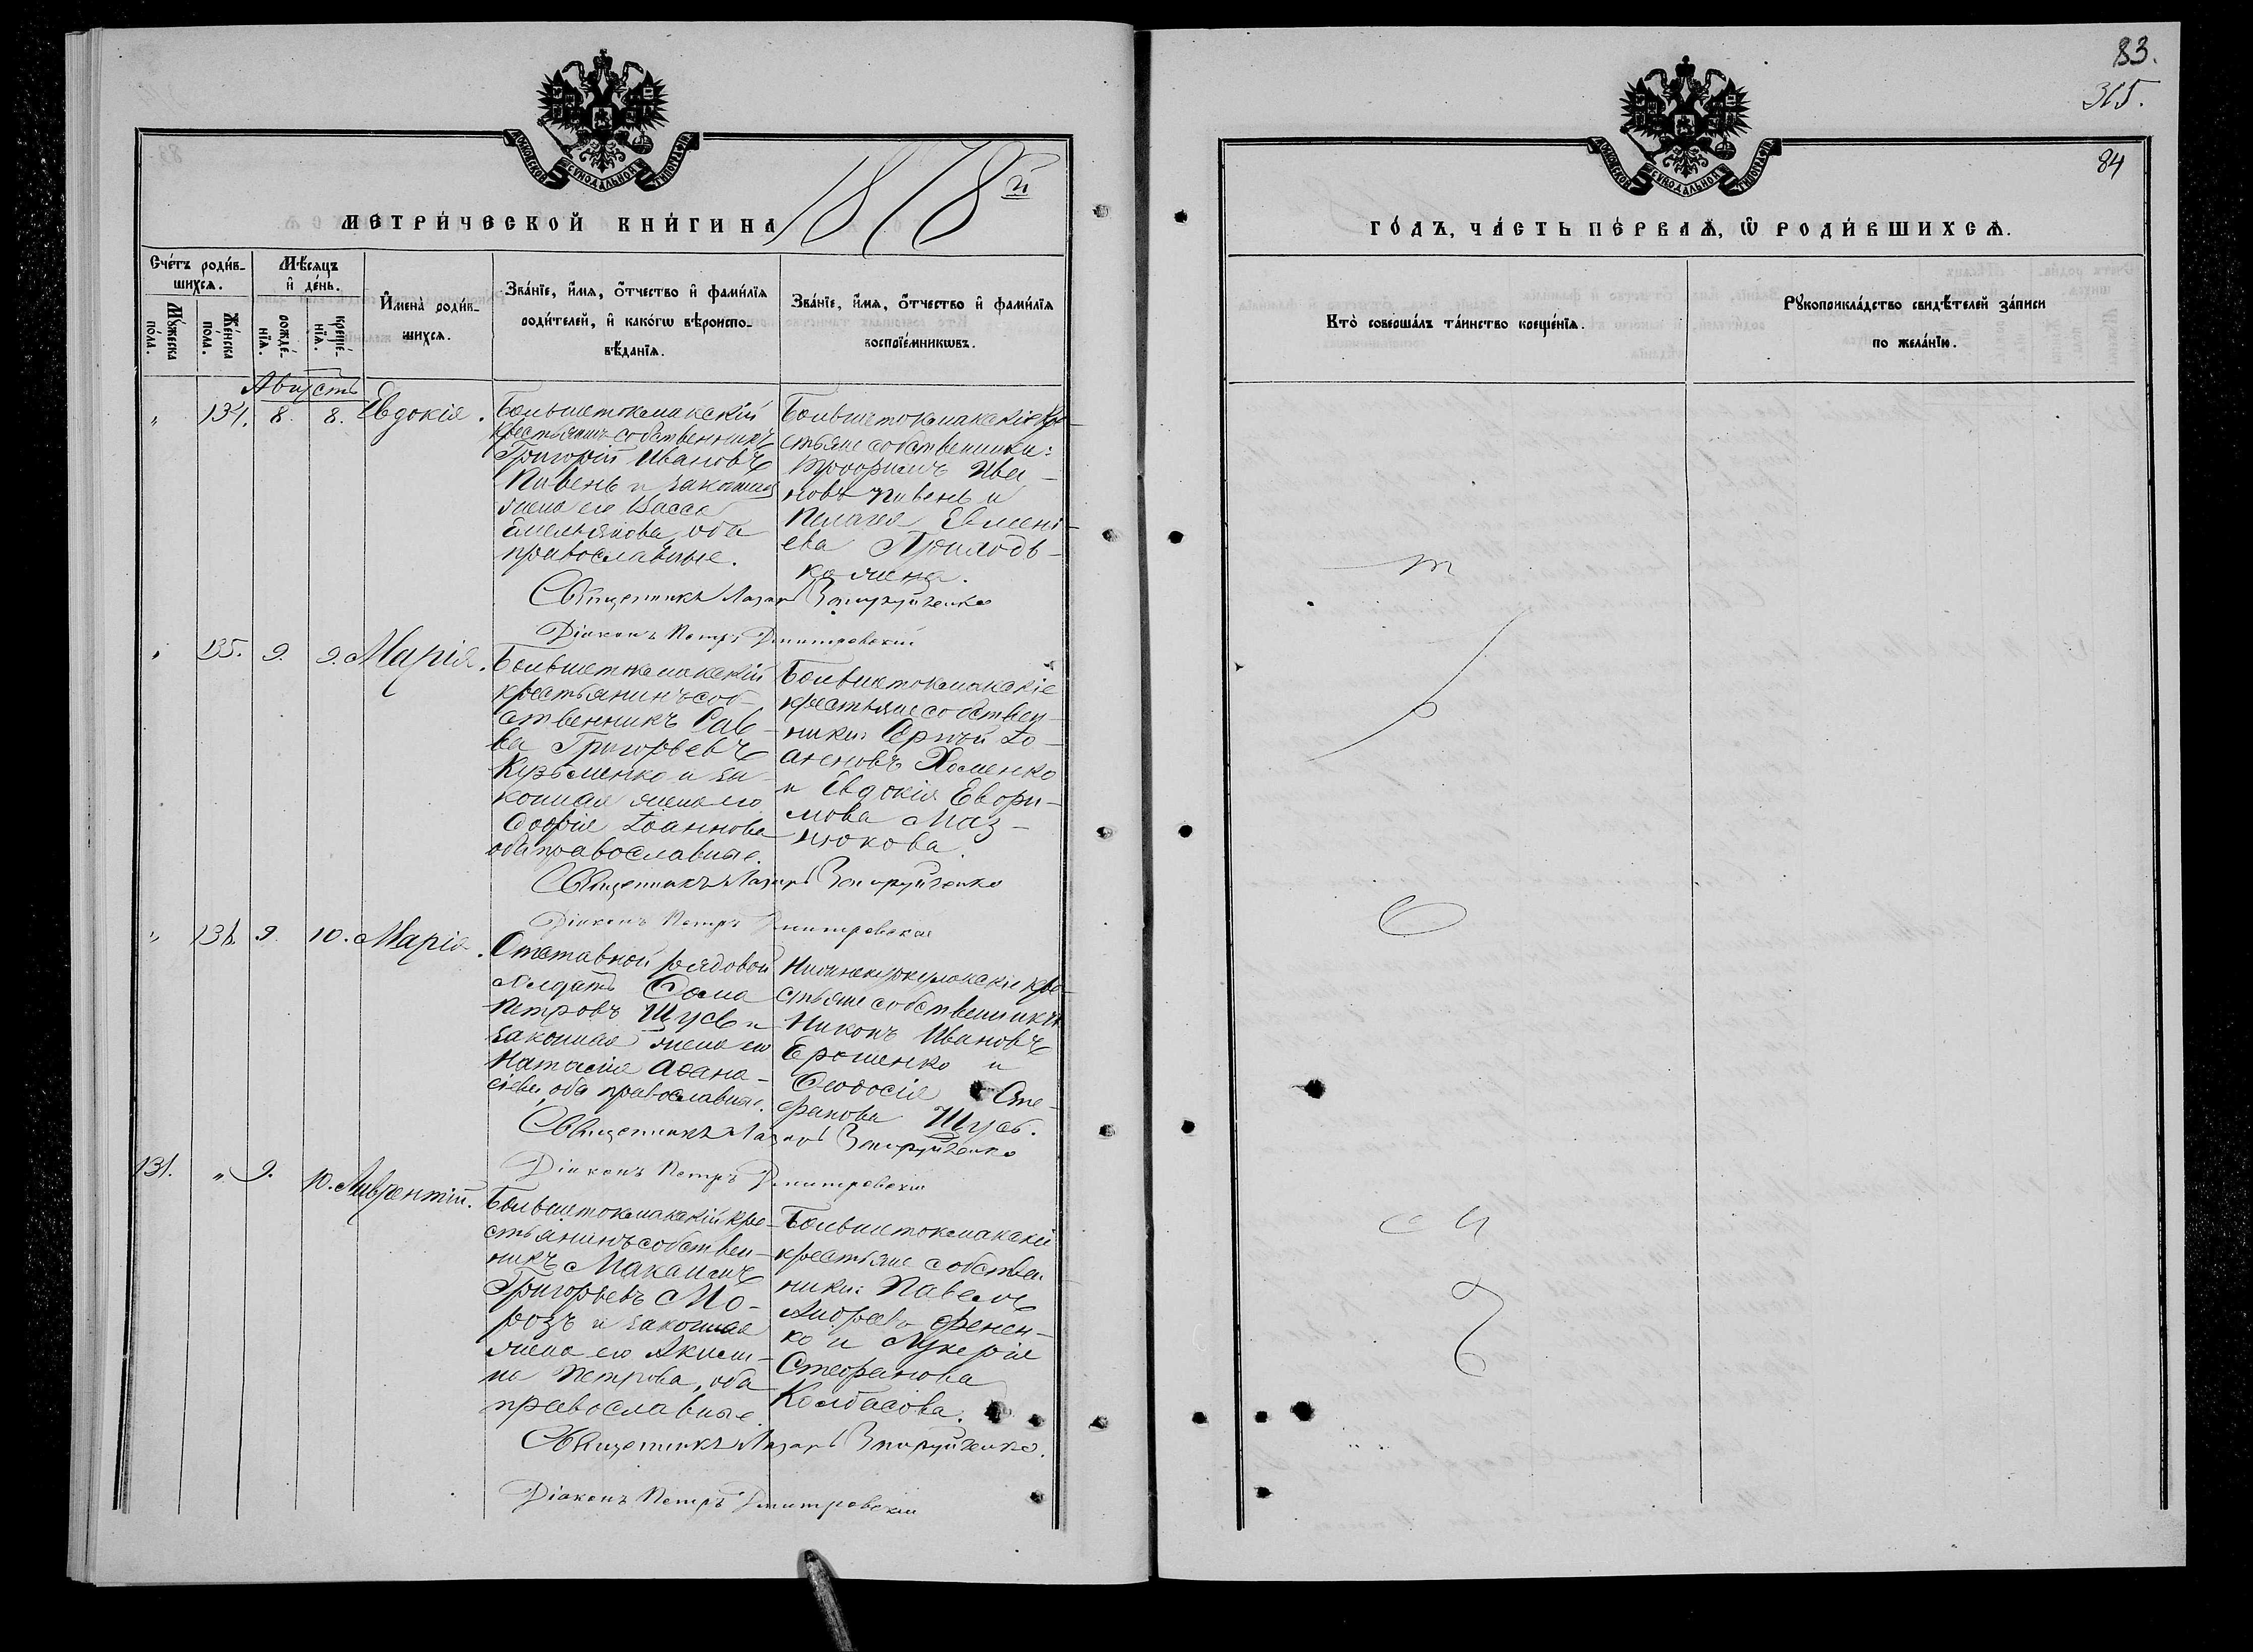 83.
315.
84
МОСКОВСКОЙ СѴНОДАЛЬНОЙ ТИПОГРАФІИ
МОСКОВСКОЙ СѴНОДАЛЬНОЙ ТИПОГРАФІИ
МЕТРИ́ЧЕСКОЙ КНИ́ГИ НА 1878й
ГО́ДЪ, ЧА́СТЬ ПЕ́РВАѦ, Ѡ РОДИ́ВШИХСѦ.
Сче́тъ роди́в-
шихсѧ.
Мꙋ́жеска по́ла.
Же́нска по́ла.
Мѣ́сѧцъ
и҆ де́нь.
рожде́-
нїѧ.
креще́-
нїѧ.
И҆мена̀ роди́в-
шихсѧ.
Зва́нїе, и҆́мѧ, ѻ҆́тчество и҆ фами́лїѧ
роди́телей, и҆ како́гѡ вѣроиспо-
вѣ́данїѧ.
Зва́нїе, и҆́мѧ, ѻ҆́тчество и҆ фами́лїѧ
воспрїе́мникѡвъ.
Кто̀ соверша́лъ та́инство креще́нїѧ.
Рꙋкоприкла́дство свидѣ́телей за́писи
по жела́нїю.
Августъ
" 134. 8. 8. Евдокія.
Большетокмакскій
крестьянинъ собственникъ
Григорій Ивановъ
Пивень и законная
жена его Васса
Емельянова, оба
православные.
Большетокмакскіе кре-
стьяне собственники:
Трофимъ Ива-
новъ Пивень и
Пелагея Евмені-
ева Приходь-
ко жена.
Священникъ Лазарь
Діаконъ Петръ Дмитровскій
" 135. 9. 9. Марія.
Большетокмакскій
крестьянинъ соб-
ственникъ Сав-
ва Григорьевъ
Кузьменко и за-
конная жена его
Софія Іоаннова
оба православные.
Большетокмакскіе
крестьяне собствен-
ники: Сергій Іо-
анновъ Хоменко
и Евдокія Ефри-
мова Маз-
нюкова.
Священникъ Лазарь
Діаконъ Петръ Дмитровскій
" 136. 9. 10. Марія.
Отставной рядовой
солдатъ Ѳома
Петровъ Щусь и
законная жена его
Наталія Аѳана-
сіева, оба православные.
кре-
стьяне собственники
Никонъ Ивановъ
Ерошенко и
Ѳеодосія Сте-
фанова Щусь.
Священникъ Лазарь
Діаконъ Петръ Дмитровскій
131. " 9. 10. Лаврентій.
Большетокмакскій кре-
стьянинъ собствен-
никъ Максимъ
Григорьевъ Мо-
розъ и законная
жена его Акили-
на Петрова, оба
православные.
Большетокмакскіе
крестьяне собствен-
ники: Павелъ
Андреевъ Фенен-
ко и Лукерія
Стефанова
Колбасова.
Священникъ Лазарь
Діаконъ Петръ Дмитровскій